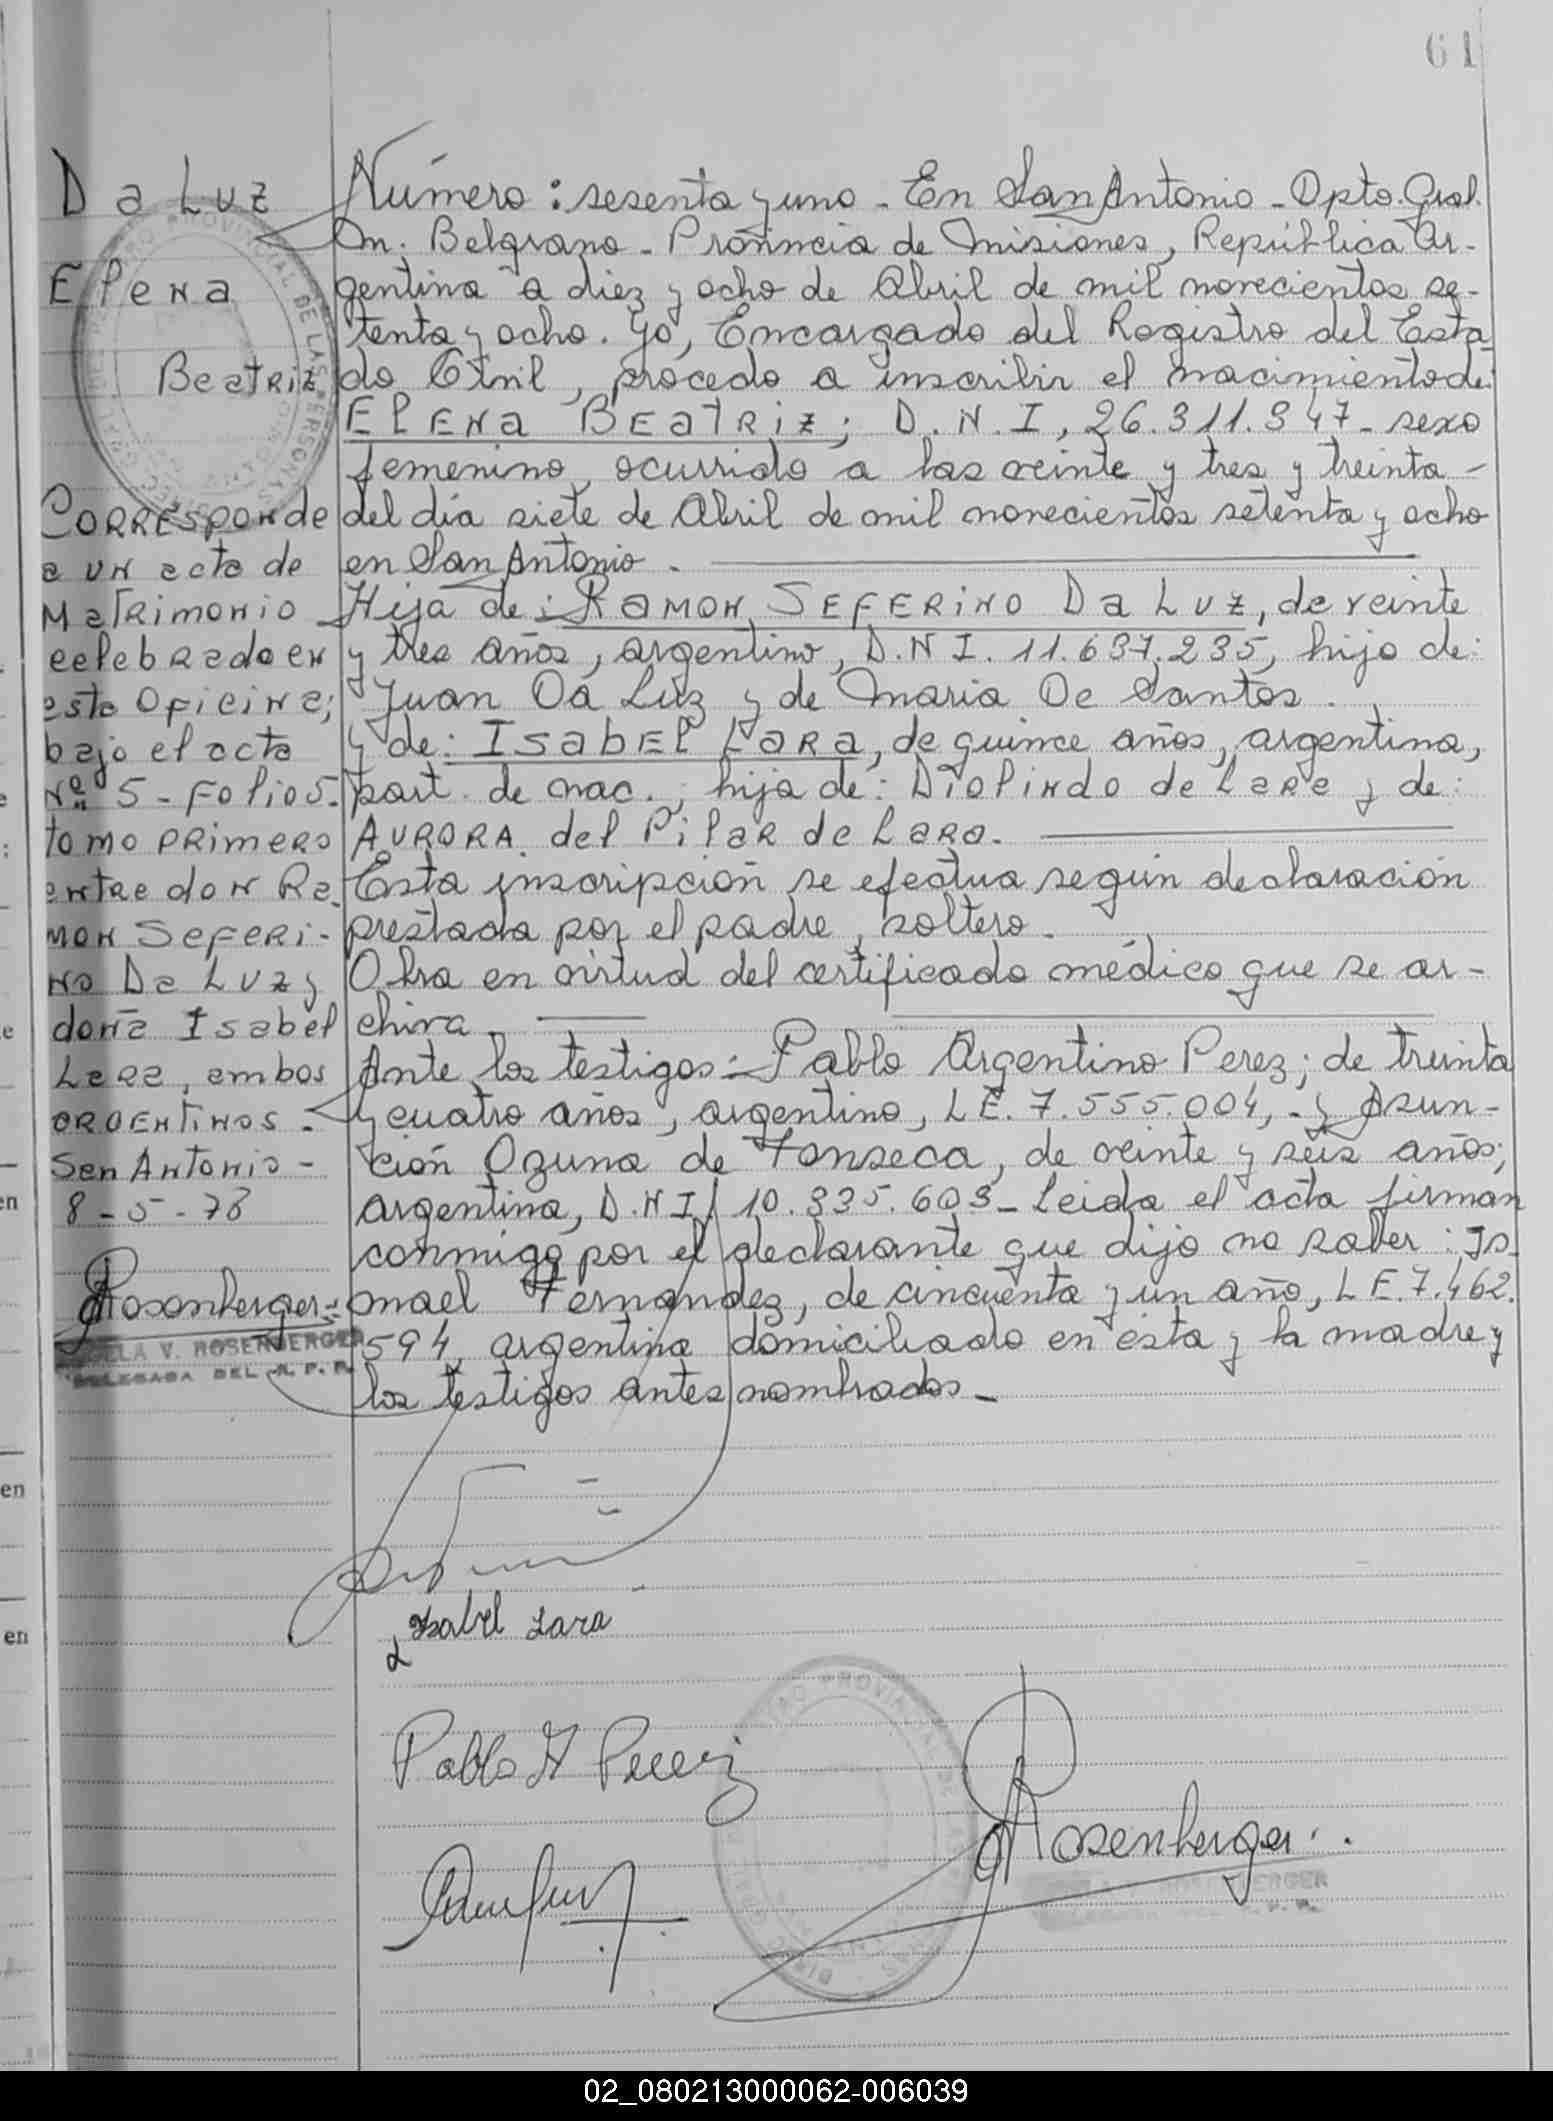 61
Da Luz
Elena
Beatriz
Corresponde
a un acta de
Matrimonio
celebrado en
esta Oficina;
bajo el acta
Nº 5 - Folio 5.
tomo primero
entre don Ra-
mon Seferi-
no Da Luz y
doña Isabel
Lara, ambos
argentinos -
San Antonio -
8 - 5 - 78
Rosenberger
ELA V. ROSENBERGER
DELEGADA DEL R. P. P.
Número: sesenta y uno - En San Antonio - Dpto. Gral.
M. Belgrano - Provincia de Misiones, República Ar-
gentina a diez y ocho de Abril de mil novecientos se-
tenta y ocho. Yo, Encargado del Registro del Esta-
do Civil, procedo a inscribir el nacimiento de:
Elena Beatriz; D. N. I, 26.311.947 - sexo
femenino, ocurrido a las veinte y tres y treinta -
del día siete de Abril de mil novecientos setenta y ocho
en San Antonio. -
Hija de: Ramon Seferino Da Luz, de veinte
y tres años, argentino, D.N.I. 11.637.235, hijo de:
Juan Da Luz y de Maria De Santos.
y de: Isabel Lara, de quince años, argentina,
part. de nac.; hija de: Diolindo de Lara y de:
Aurora del Pilar de Lara.
Esta inscripción se efectua según declaración
prestada por el padre, soltero.
Obra en virtud del certificado médico que se ar-
chiva
Ante los testigos: Pablo Argentino Perez; de treinta
y cuatro años, argentino, L.E. 7.555.004, - y Asun-
ción Ozuna de Fonseca, de veinte y seis años;
argentina, D.N.I. 10.835.603 - Leida el acta firman
conmigo por el declarante que dijo no saber: Is-
mael Fernandez, de cincuenta y un año, L E. 7.462.
594, argentino domiciliado en ésta y la madre y
los testigos antes nombrados -
Isabel Lara
Pablo A Perez
Rosenberger
02_080213000062-006039